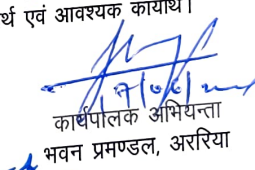 र्थ एवं आवश्यक कार्यार्थ।
कार्यपालक अभियन्ता
भवन प्रमण्डल, अररिया